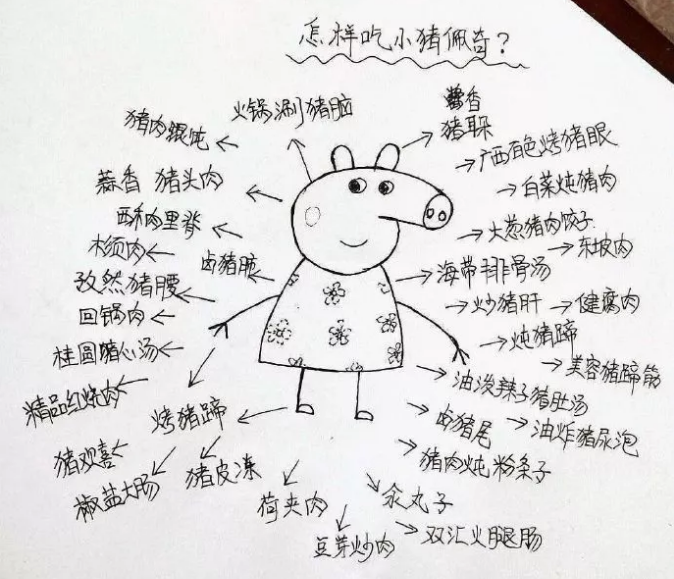 怎样吃小猪佩奇?
火锅涮猪脑
酱香
猪耳朵
猪肉混沌
广西百色烤猪眼
蒜香 猪头肉
白菜炖猪肉
西和肉里脊
大葱猪肉饺子
木须肉
卤猪脏
东坡肉
孜然猪腰
海带排骨汤
回锅肉
炒猪肝
健腐肉
桂圆猪心汤
炖猪蹄
美容猪蹄筋
精品红烧肉
油泼辣子猪肚汤
烤猪蹄
卤猪尾
油炸猪尿泡
猪欢喜
猪皮冻
猪肉炖粉条子
椒盐大肠
荷夹肉
汆丸子
豆芽炒肉
双汇火腿肠